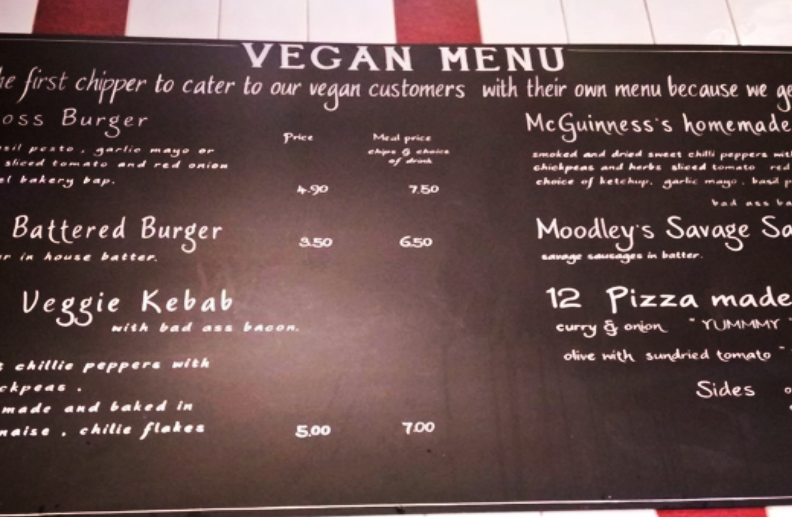 VEGAN MENU
he first chipper to cater to our vegan customers with their own menu because we ge
oss Burger
sil pesto , garlic mayo or
sliced tomato and red onion
el bakery bap.
Price
Meal price
chips & choice
of drink
4.90 7.50
Battered Burger
3.50 6.50
r in house batter.
Veggie Kebab
with bad ass bacon.
t chillie peppers with
ckpeas .
made and baked in
naise , chilie flakes
5.00 7.00
McGuinness's homemade
smoked and dried sweet chilli peppers wit
chickpeas and herbs sliced tomato red
choice of ketchup, garlic mayo , basil p
bad ass ba
Moodley's Savage Sa
savage sausages in batter.
12 Pizza made
curry & onion "YUMMMY"
olive with sundried tomato "
Sides